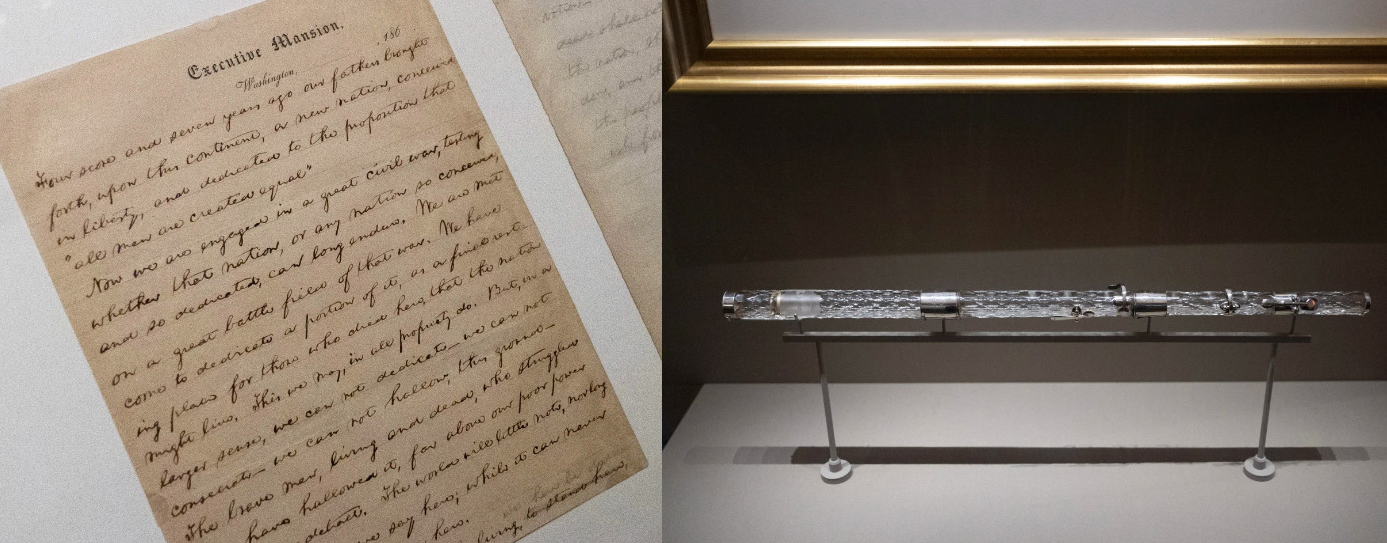 Executive Mansion,
Washington, , 186
Four score and seven years ago our fathers brought
forth, upon this continent, a new nation, conceived
in liberty, and dedicated to the proposition that
"all men are created equal"
Now we are engaged in a great civil war, testing
whether that nation, or any nation so conceived,
and so dedicated, can long endure. We are met
on a great battle field of that war. We have
come to dedicate a portion of it, as a final rest-
ing place for those who died here, that the nation
might live. This we may, in all propriety do. But, in a
larger sense, we can not dedicate — we can not
consecrate — we can not hallow, this ground —
The brave men, living and dead, who struggled
have hallowed it, far above our poor power
detract. The world will little note, nor long
we say here; while it can never
here.
living, to stand here,
the nation, th
the people